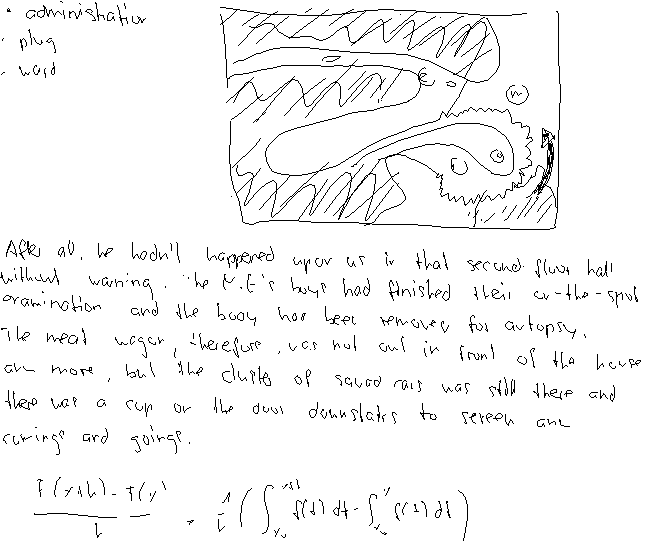 • administration
- plug
- ward
E
m
After all, he hadn't happened upon us in that second-floor hall
without warning. The M.E's boys had finished their on-the-spot
examination and the body has been removed for autopsy.
The meat wagon, therefore, was not out in front of the house
any more, but the cluster of squad cars was still there and
there was a cop on the door downstairs to screen any
comings and goings.
F(x+h) - F(x) / h = 1/h ( ∫ x₀ x+h f(t) dt - ∫ x₀ x f(t) dt )